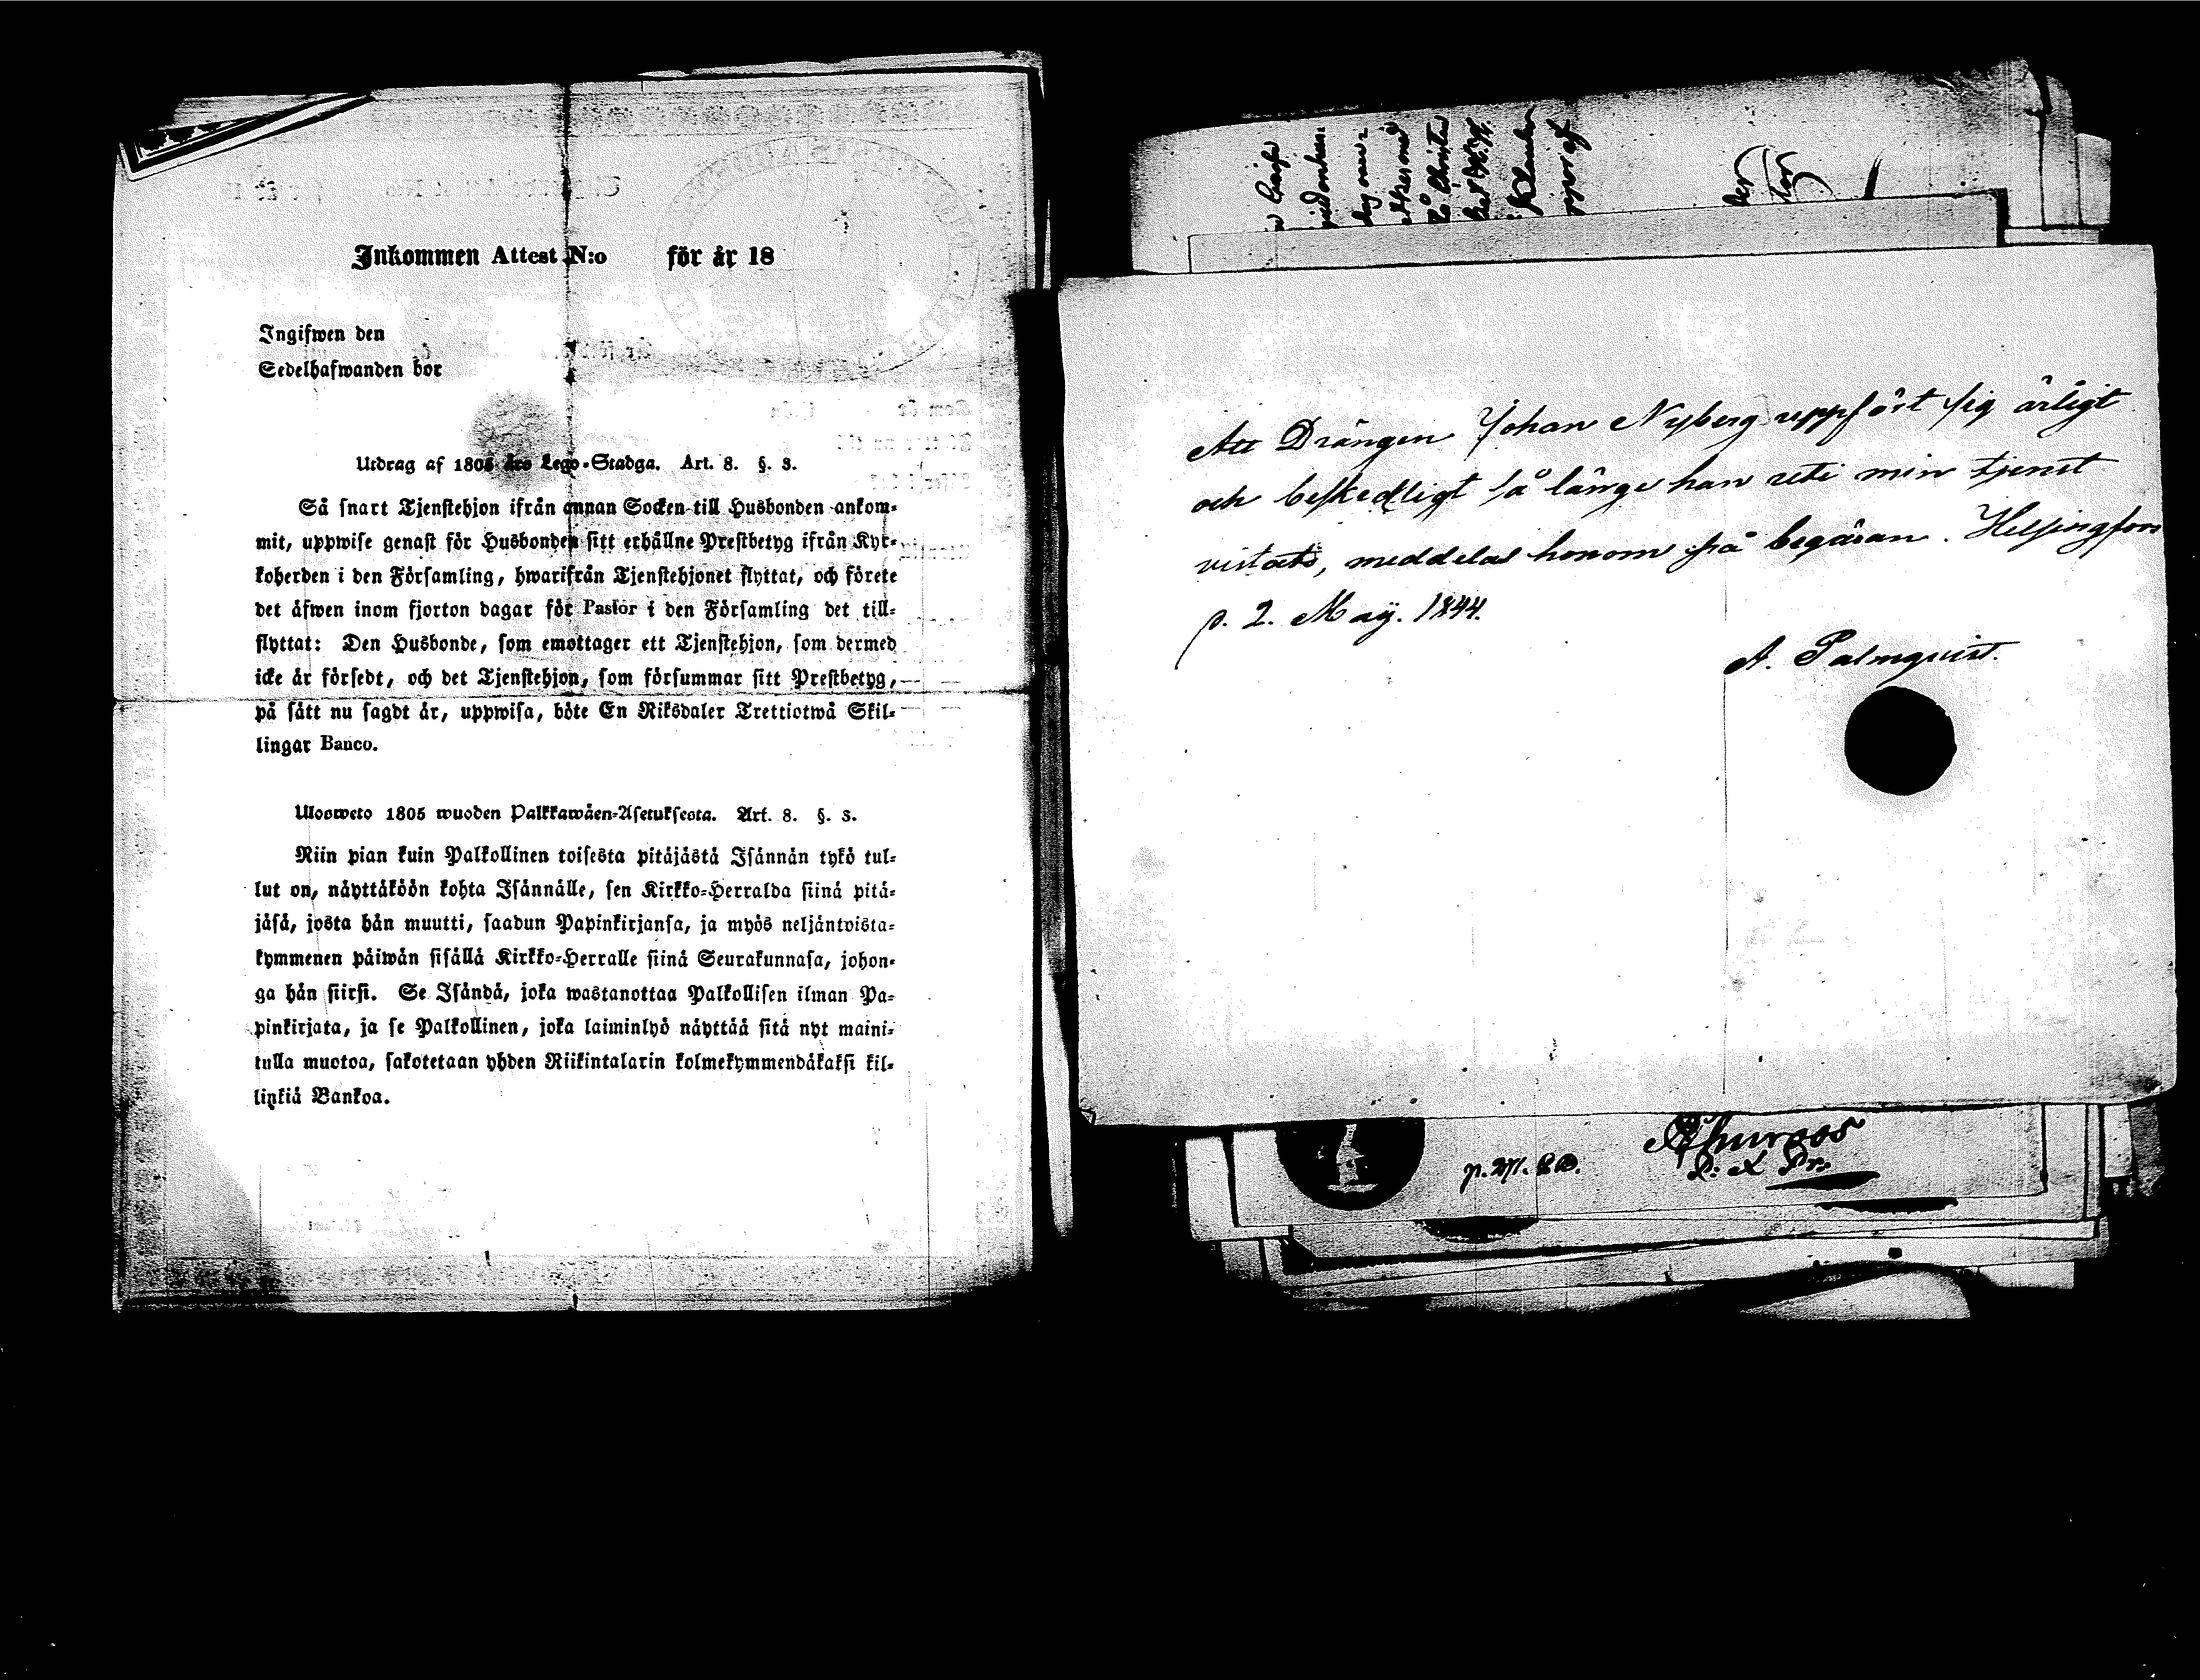 Inkommen Attest N:o för år 18
Ingifwen den
Sedelhafwanden bor
Utdrag af 1805 års Lego-Stadga. Art. 8. §. 3.
Så snart Tjenstehjon ifrån annan Socken till Husbonden ankom-
mit, uppwise genast för Husbonden sitt erhållne Prestbetyg ifrån Kyr-
koherden i den Församling, hwarifrån Tjenstehjonet flyttat, och förete
det äfwen inom fjorton dagar för Pastor i den Församling det till-
flyttat: Den Husbonde, som emottager ett Tjenstehjon, som dermed
icke är försedt, och det Tjenstehjon, som försummar sitt Prestbetyg,
på sätt nu sagdt är, uppwisa, böte En Riksdaler Trettiotwå Skil-
lingar Banco.
Ulosweto 1805 wuoden Palkkawäen-Asetuksesta. Art. 8. §. 3.
Niin pian kuin Palkollinen toisesta pitäjästä Isännän tykö tul-
lut on, näyttäköön kohta Isännälle, sen Kirkko-Herralda siinä pitä-
jäsä, josta hän muutti, saadun Papinkirjansa, ja myös neljäntoista-
kymmenen päiwän sisällä Kirkko-Herralle siinä Seurakunnasa, johon-
ga hän siirsi. Se Isändä, joka wastanottaa Palkollisen ilman Pa-
pinkirjata, ja se Palkollinen, joka laiminlyö näyttää sitä nyt maini-
tulla muotoa, sakotetaan yhden Riikintalarin kolmekymmendäkaksi kil-
linkiä Bankoa.
Att Drängen Johan Nyberg uppfört sig ärligt
och beskedligt så länge han uti min tjenst
vistats, meddelas honom på begäran. Helsingfors
d. 2. Maij. 1844.
A. Palmqvist.